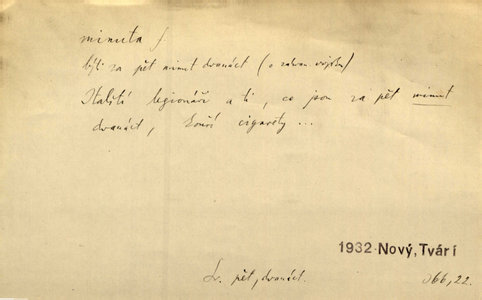 minuta f.
býti za pět minut dvanáct (
Italští legionáři a ti, co jsou za pět minut
dvanáct, kouří cigarety ...
1932 Nový, Tváří
Sv. pět, dvanáct.
366, 22.